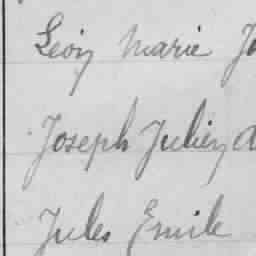 Léon Marie
Joseph Julien
Jules Emile